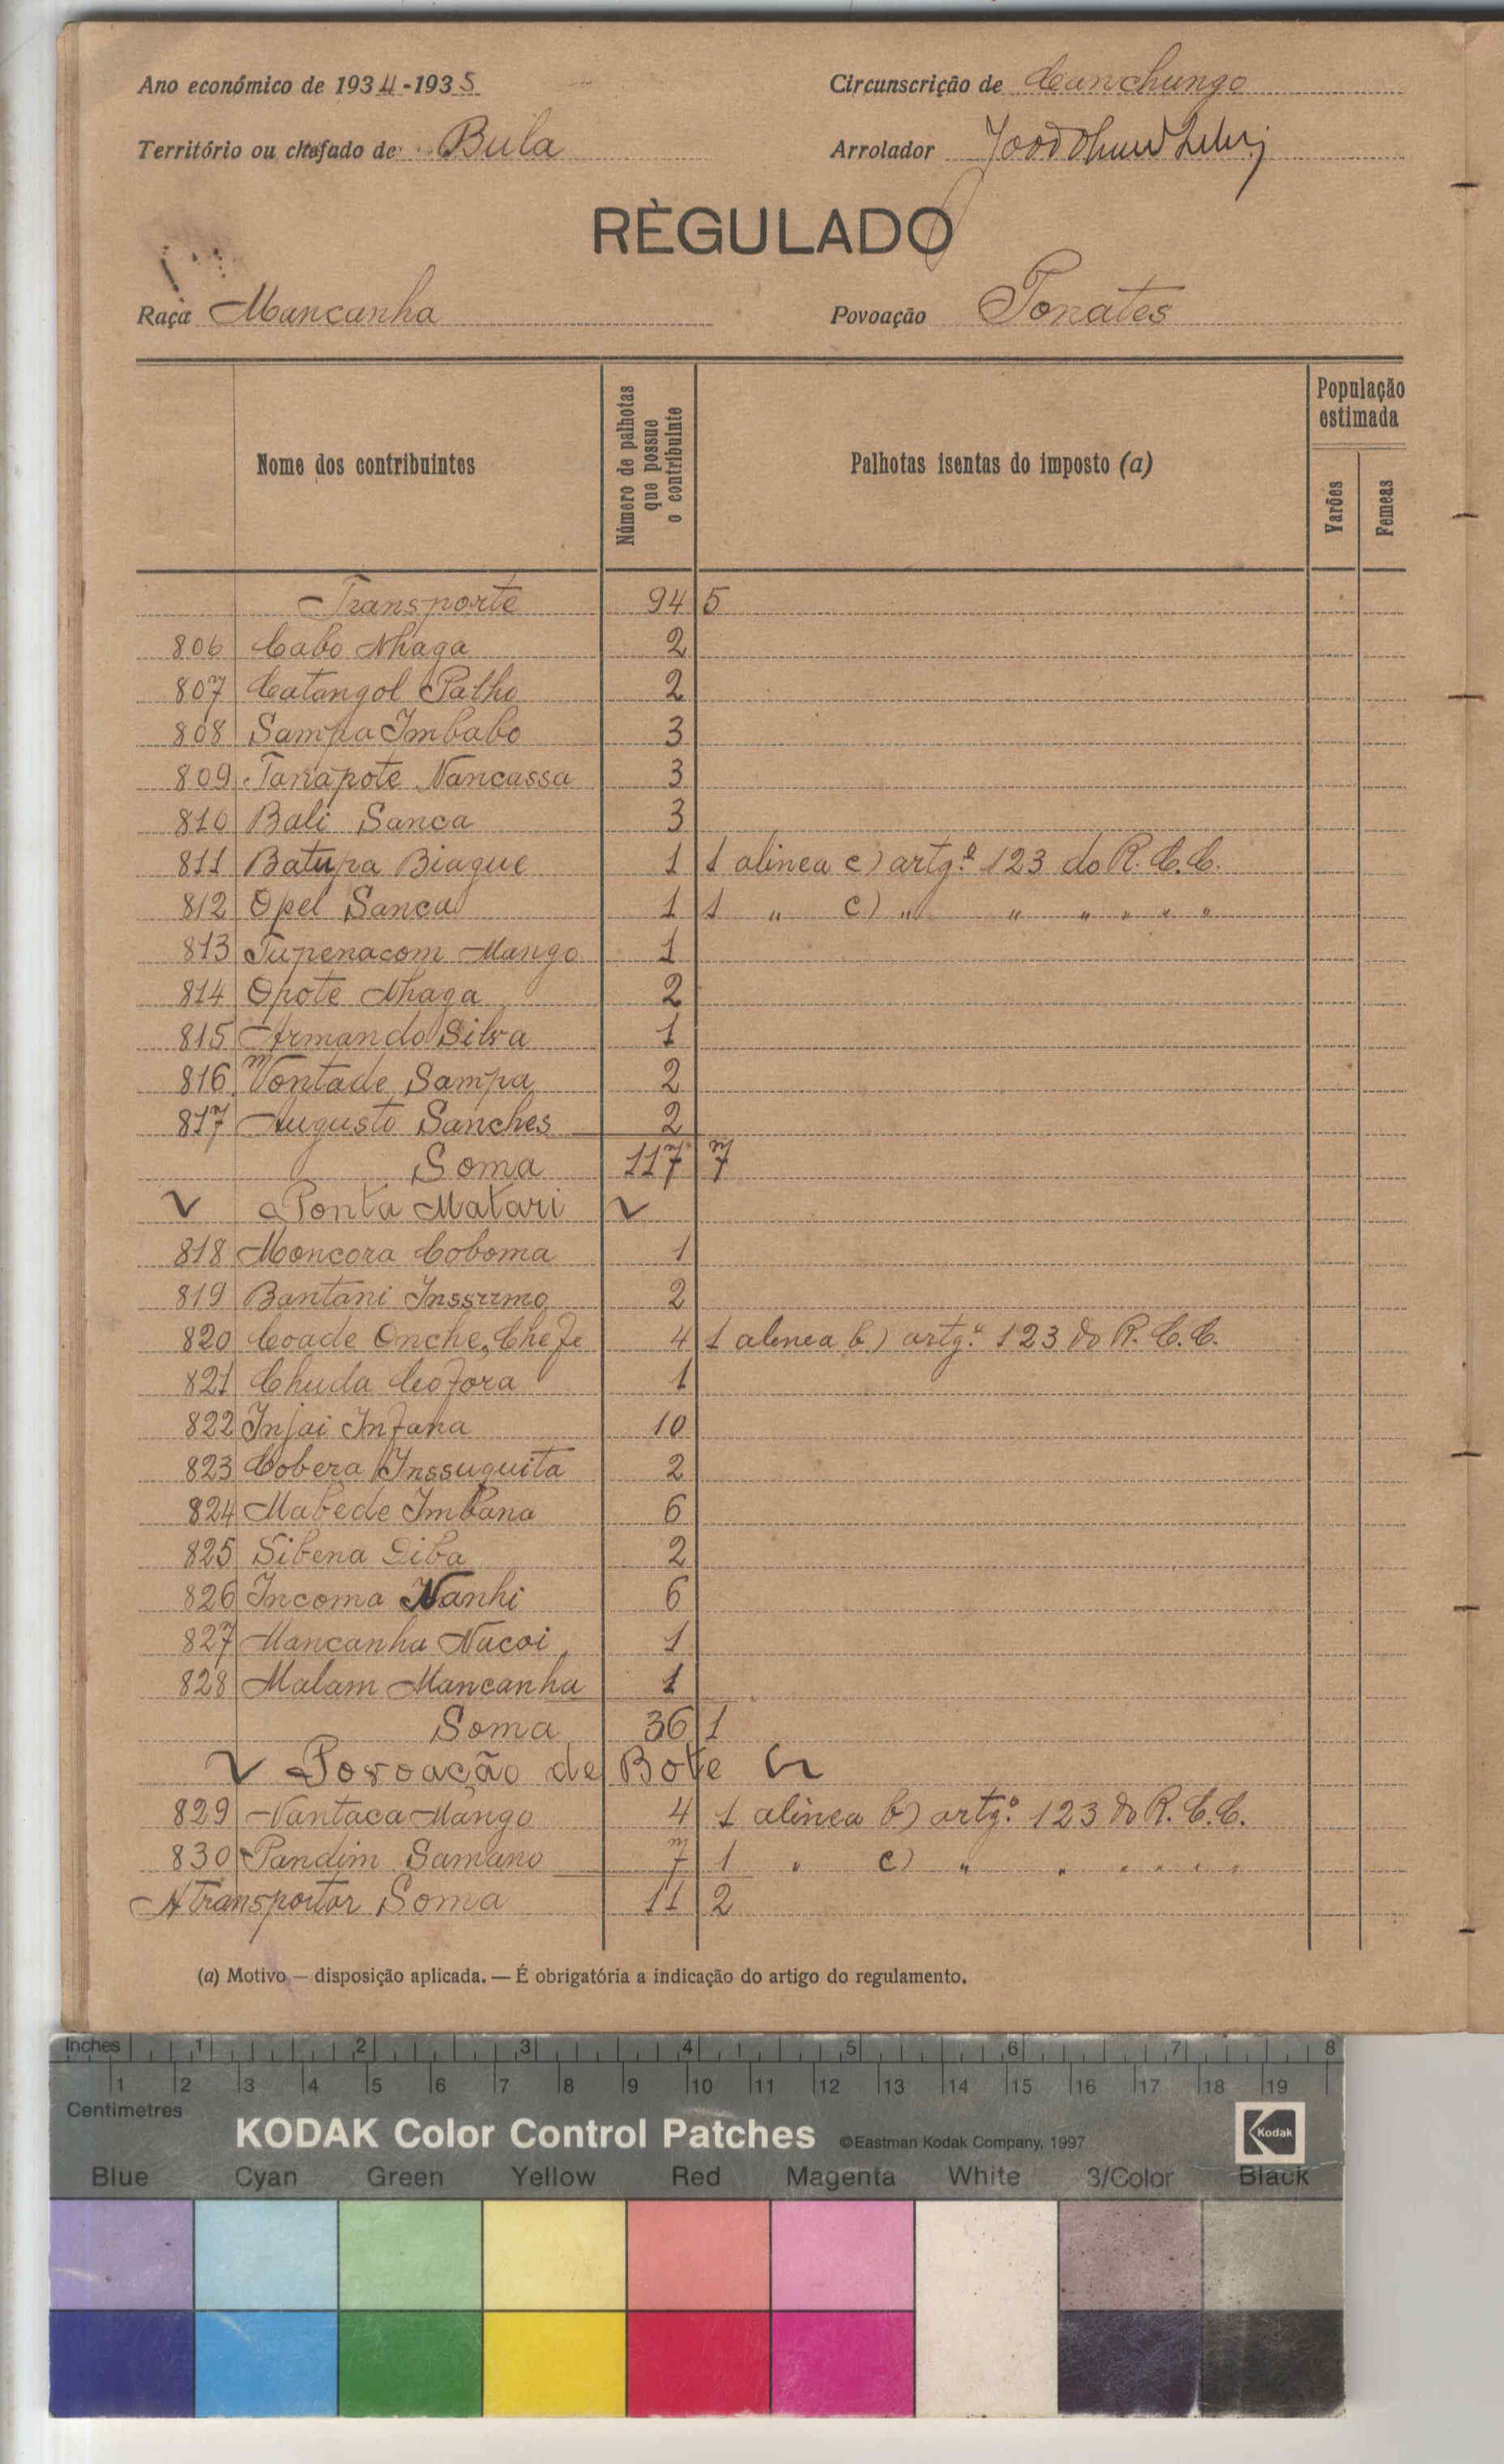 Ano económico de 1934-1935
Circunscrição de Canchungo
Território ou chefado de Bula
Arrolador
RÈGULADO
Raça Mancanha
Povoação Ponates
Nome dos contribuintes
Número de palhotas que possue o contribuinte
Palhotas isentas do imposto (a)
População estimada
Varões
Femeas
Transporte 94 5
806 Cabo Nhaga 2
807 Catangol Patho 2
808 Sampa Imbabo 3
809 Tanapote Nancassa 3
810 Bali Sanca 3
811 Batupa Biague 1 1 alinea c) artg.º 123 do R. C. C.
812 Opel Sanca 1 1 " c) " " " " " "
813 Tupenacom Mango 1
814 Opote Nhaga 2
815 Armando Silva 1
816 Vontade Sampa 2
817 Augusto Sanches 2
Soma 117 7
Ponta Matari
818 Moncora Coboma 1
819 Bantani 2
820 Coade Onche, Chefe 4 1 alinea b) artg.º 123 do R. C. C.
821 Chuda Cofora 1
822 Injai Infana 10
823 Cobera Inssuquita 2
824 Mabede Imbana 6
825 Sibena Diba 2
826 Incoma Nanhi 6
827 Mancanha Nacoi 1
828 Malam Mancanha 1
Soma 36 1
Povoação de Bote
829 Nantaca Mango 4 1 alinea b) artg.º 123 do R. C. C.
830 Pandim Samano 7 1 " c) " " " " " "
A transportar Soma 11 2
(a) Motivo — disposição aplicada. — É obrigatória a indicação do artigo do regulamento.
Inches 1 2 3 4 5 6 7 8
1 2 3 4 5 6 7 8 9 10 11 12 13 14 15 16 17 18 19
Centimetres
KODAK Color Control Patches ©Eastman Kodak Company, 1997 Kodak
Blue Cyan Green Yellow Red Magenta White 3/Color Black